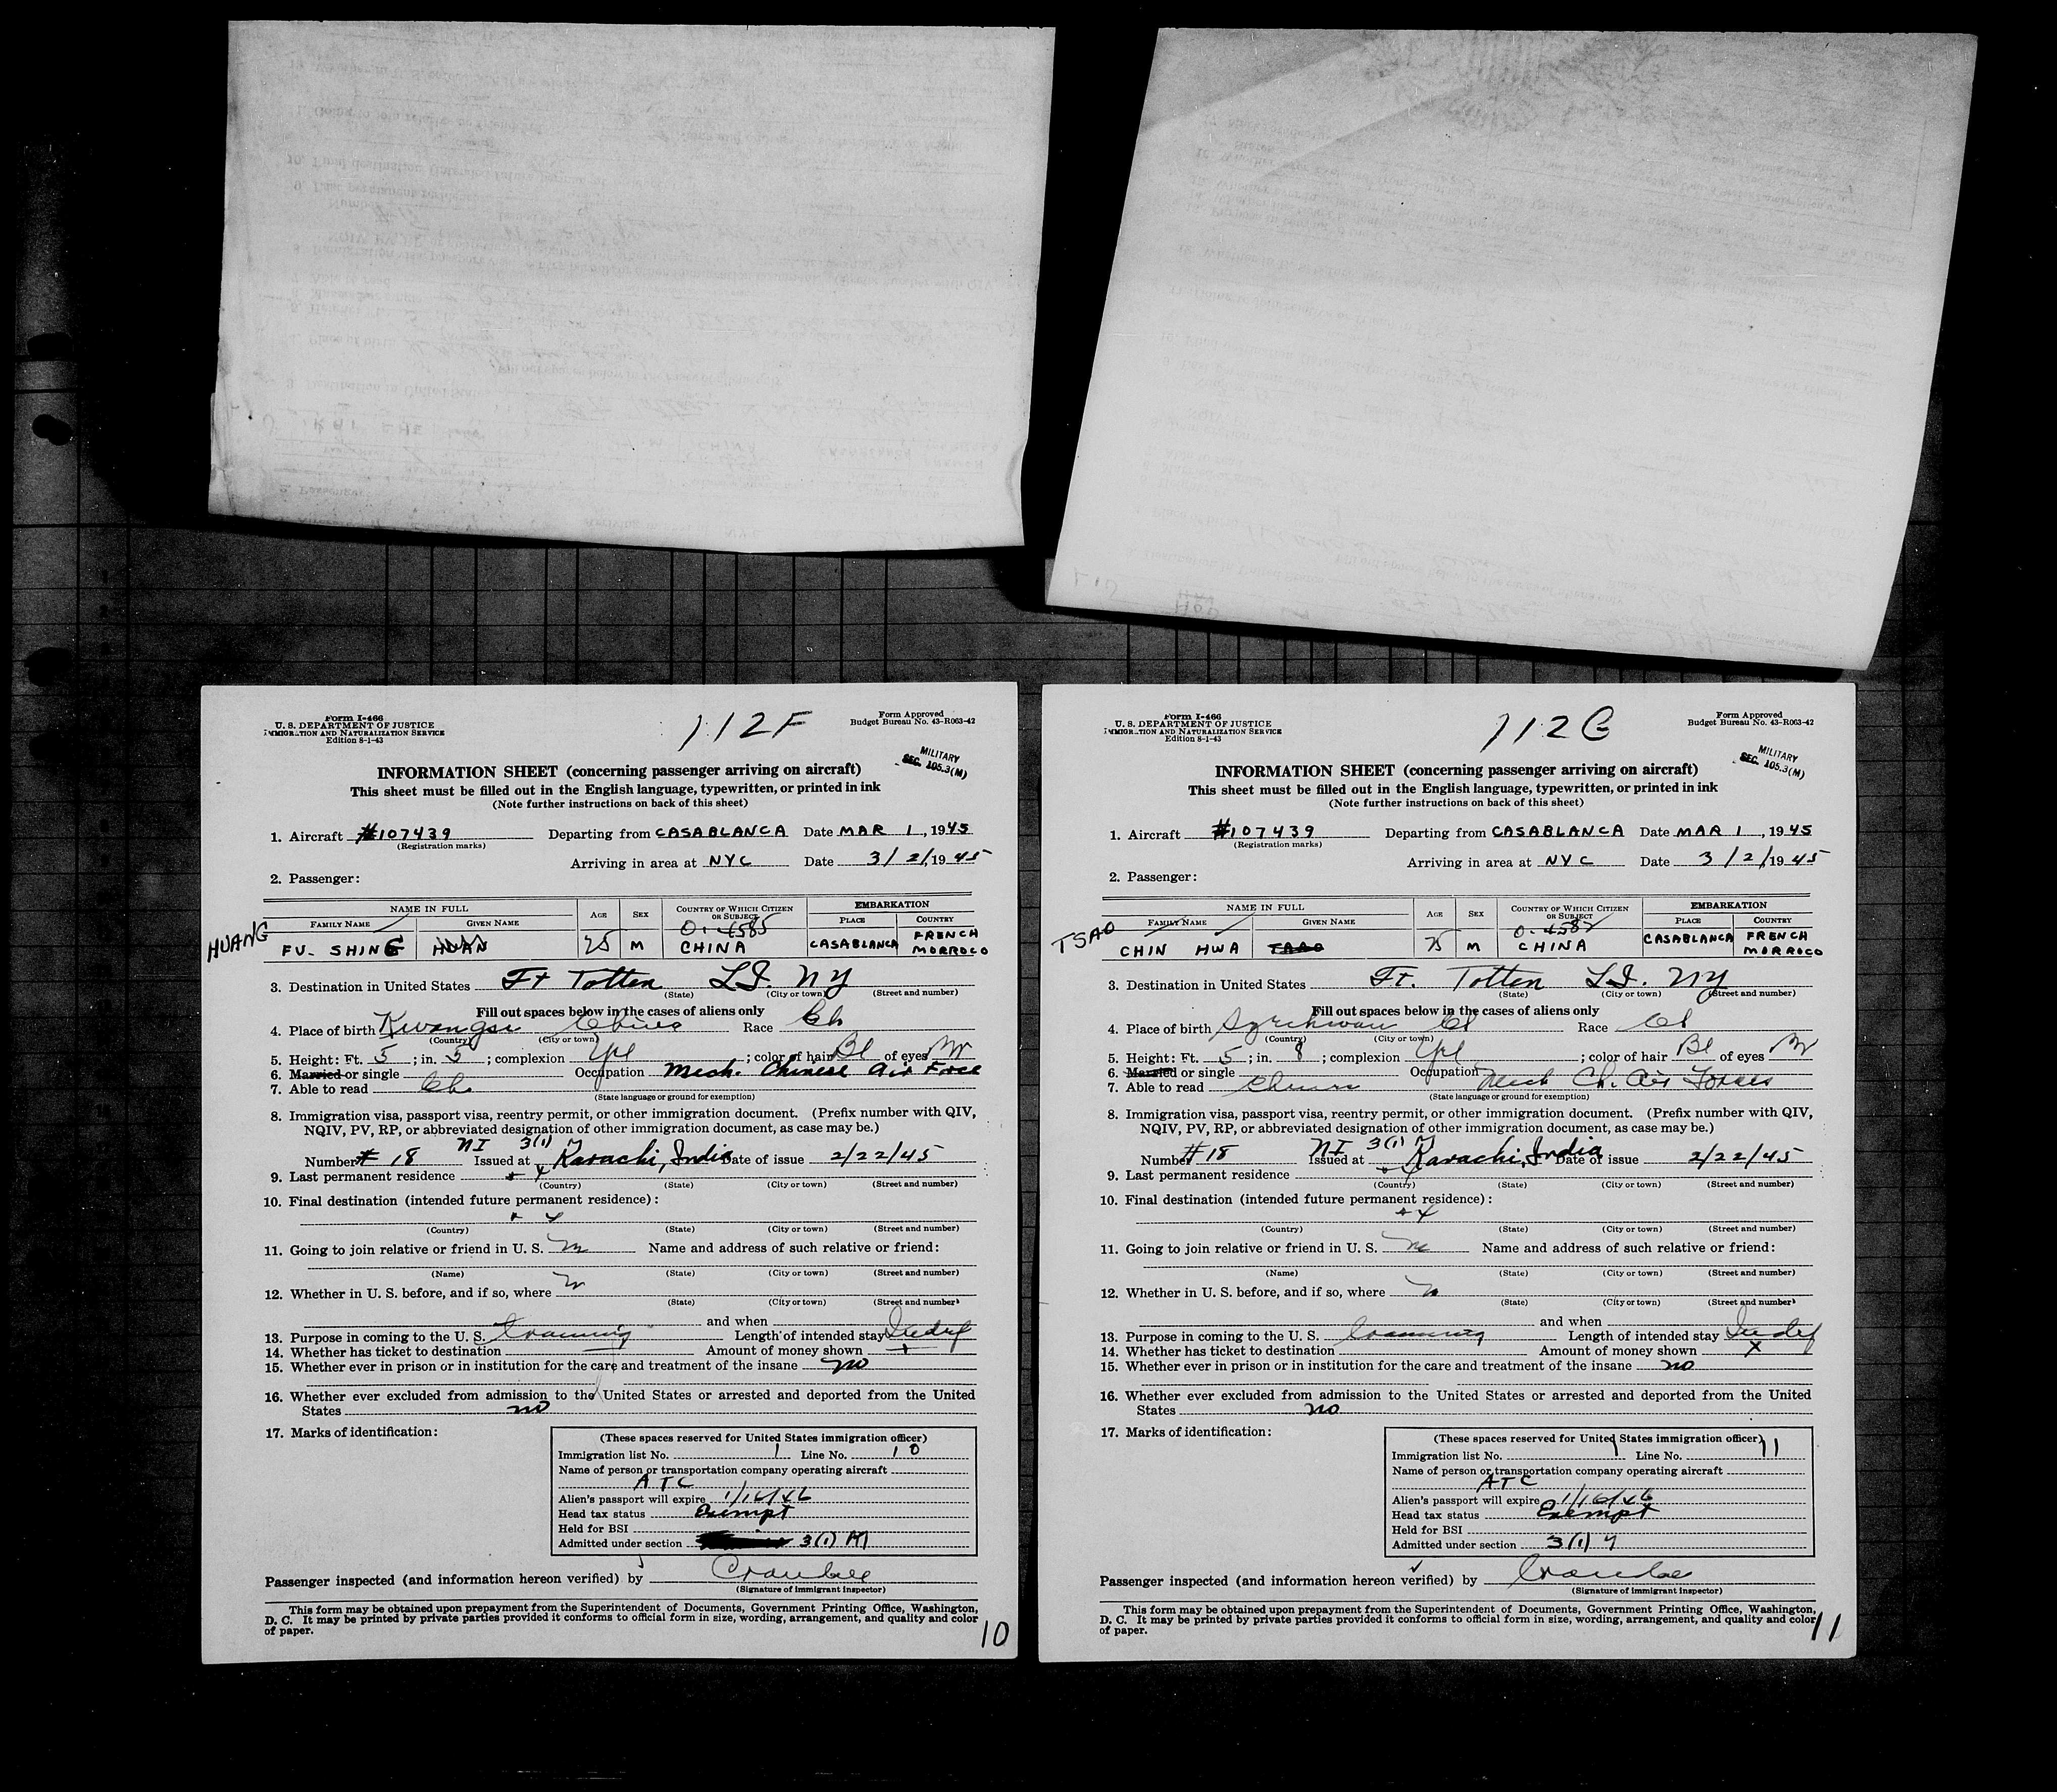 Form I-466
U. S. DEPARTMENT OF JUSTICE
IMMIGRATION AND NATURALIZATION SERVICE
Edition 8-1-43
112F
Form Approved
Budget Bureau No. 43-R063-42
MILITARY
SEC. 105.3(M)
INFORMATION SHEET (concerning passenger arriving on aircraft)
This sheet must be filled out in the English language, typewritten, or printed in ink
(Note further instructions on back of this sheet)
1. Aircraft #107439 Departing from CASABLANCA Date MAR 1, 1945
(Registration marks)
Arriving in area at NYC Date 3/2/, 1945
2. Passenger:
NAME IN FULL AGE SEX COUNTRY OF WHICH CITIZEN OR SUBJECT EMBARKATION
FAMILY NAME GIVEN NAME PLACE COUNTRY
0-4585
HUANG FU-SHING HUAN 25 M CHINA CASABLANCA FRENCH MORROCO
3. Destination in United States Ft Totten L.I. NY
(State) (City or town) (Street and number)
Fill out spaces below in the cases of aliens only
4. Place of birth Kwangsi China Race Ch
(Country) (City or town)
5. Height: Ft. 5; in. 5; complexion Yel; color of hair Bl of eyes Br
6. Married or single Occupation Mech. Chinese Air Force
7. Able to read Ch.
(State language or ground for exemption)
8. Immigration visa, passport visa, reentry permit, or other immigration document. (Prefix number with QIV,
NQIV, PV, RP, or abbreviated designation of other immigration document, as case may be.)
NI 3(1) 7
Number # 18 Issued at Karachi, India Date of issue 2/22/45
9. Last permanent residence
(Country) (State) (City or town) (Street and number)
10. Final destination (intended future permanent residence):
(Country) (State) (City or town) (Street and number)
11. Going to join relative or friend in U. S. no Name and address of such relative or friend:
(Name) (State) (City or town) (Street and number)
12. Whether in U. S. before, and if so, where no
(State) (City or town) (Street and number)
and when
13. Purpose in coming to the U. S. training Length of intended stay Indef
14. Whether has ticket to destination Amount of money shown
15. Whether ever in prison or in institution for the care and treatment of the insane no
16. Whether ever excluded from admission to the United States or arrested and deported from the United
States no
17. Marks of identification:
(These spaces reserved for United States immigration officer)
Immigration list No. 1 Line No. 10
Name of person or transportation company operating aircraft
ATC
Alien's passport will expire 1/16/46
Head tax status Exempt
Held for BSI
Admitted under section 3(1)
Passenger inspected (and information hereon verified) by
(Signature of immigrant inspector)
This form may be obtained upon prepayment from the Superintendent of Documents, Government Printing Office, Washington,
D. C. It may be printed by private parties provided it conforms to official form in size, wording, arrangement, and quality and color
of paper.
10
Form I-466
U. S. DEPARTMENT OF JUSTICE
IMMIGRATION AND NATURALIZATION SERVICE
Edition 8-1-43
112G
Form Approved
Budget Bureau No. 43-R063-42
MILITARY
SEC. 105.3(M)
INFORMATION SHEET (concerning passenger arriving on aircraft)
This sheet must be filled out in the English language, typewritten, or printed in ink
(Note further instructions on back of this sheet)
1. Aircraft #107439 Departing from CASABLANCA Date MAR 1, 1945
(Registration marks)
Arriving in area at NYC Date 3/2/1945
2. Passenger:
NAME IN FULL AGE SEX COUNTRY OF WHICH CITIZEN OR SUBJECT EMBARKATION
FAMILY NAME GIVEN NAME PLACE COUNTRY
0-4582
TSAO CHIN HWA TSAO 25 M CHINA CASABLANCA FRENCH MORROCO
3. Destination in United States Ft. Totten L.I. NY
(State) (City or town) (Street and number)
Fill out spaces below in the cases of aliens only
4. Place of birth Szechwan Ch Race Ch
(Country) (City or town)
5. Height: Ft. 5; in. 8; complexion Yel; color of hair Bl of eyes Br
6. Married or single Occupation Mech Ch. Air Forces
7. Able to read Chinese
(State language or ground for exemption)
8. Immigration visa, passport visa, reentry permit, or other immigration document. (Prefix number with QIV,
NQIV, PV, RP, or abbreviated designation of other immigration document, as case may be.)
NI 3(1) 7
Number #18 Issued at Karachi, India Date of issue 2/22/45
9. Last permanent residence
(Country) (State) (City or town) (Street and number)
10. Final destination (intended future permanent residence):
(Country) (State) (City or town) (Street and number)
11. Going to join relative or friend in U. S. no Name and address of such relative or friend:
(Name) (State) (City or town) (Street and number)
12. Whether in U. S. before, and if so, where no
(State) (City or town) (Street and number)
and when
13. Purpose in coming to the U. S. training Length of intended stay Indef
14. Whether has ticket to destination Amount of money shown X
15. Whether ever in prison or in institution for the care and treatment of the insane no
16. Whether ever excluded from admission to the United States or arrested and deported from the United
States no
17. Marks of identification:
(These spaces reserved for United States immigration officer)
Immigration list No. 1 Line No. 11
Name of person or transportation company operating aircraft
ATC
Alien's passport will expire 1/16/46
Head tax status Exempt
Held for BSI
Admitted under section 3(1) 7
Passenger inspected (and information hereon verified) by
(Signature of immigrant inspector)
This form may be obtained upon prepayment from the Superintendent of Documents, Government Printing Office, Washington,
D. C. It may be printed by private parties provided it conforms to official form in size, wording, arrangement, and quality and color
of paper.
11